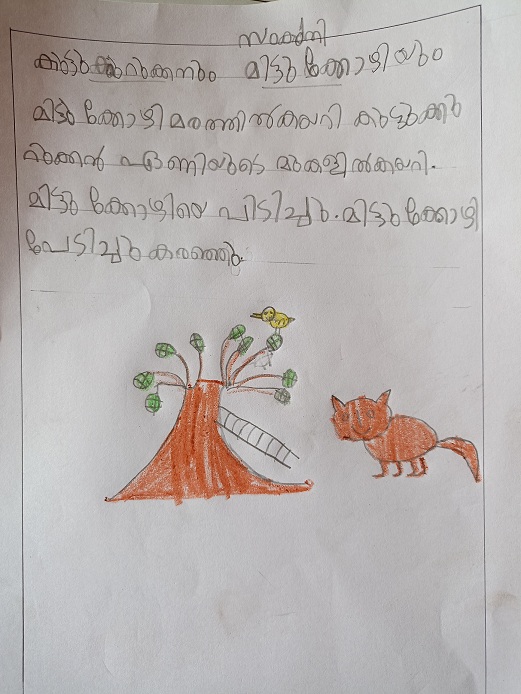 സാകതനി
കുട്ടു കുറുക്കനും മിട്ടു ക്കോഴിയും
മിട്ടു ക്കോഴി മരത്തിൽകയറി കുട്ടുക്കു
റുക്കൻ ഏണിയുടെ മുകളിൽകയറി.
മിട്ടു ക്കോഴിയെ പിടിച്ചു. മിട്ടു ക്കോഴി
പേടിച്ചു കരഞ്ഞു.